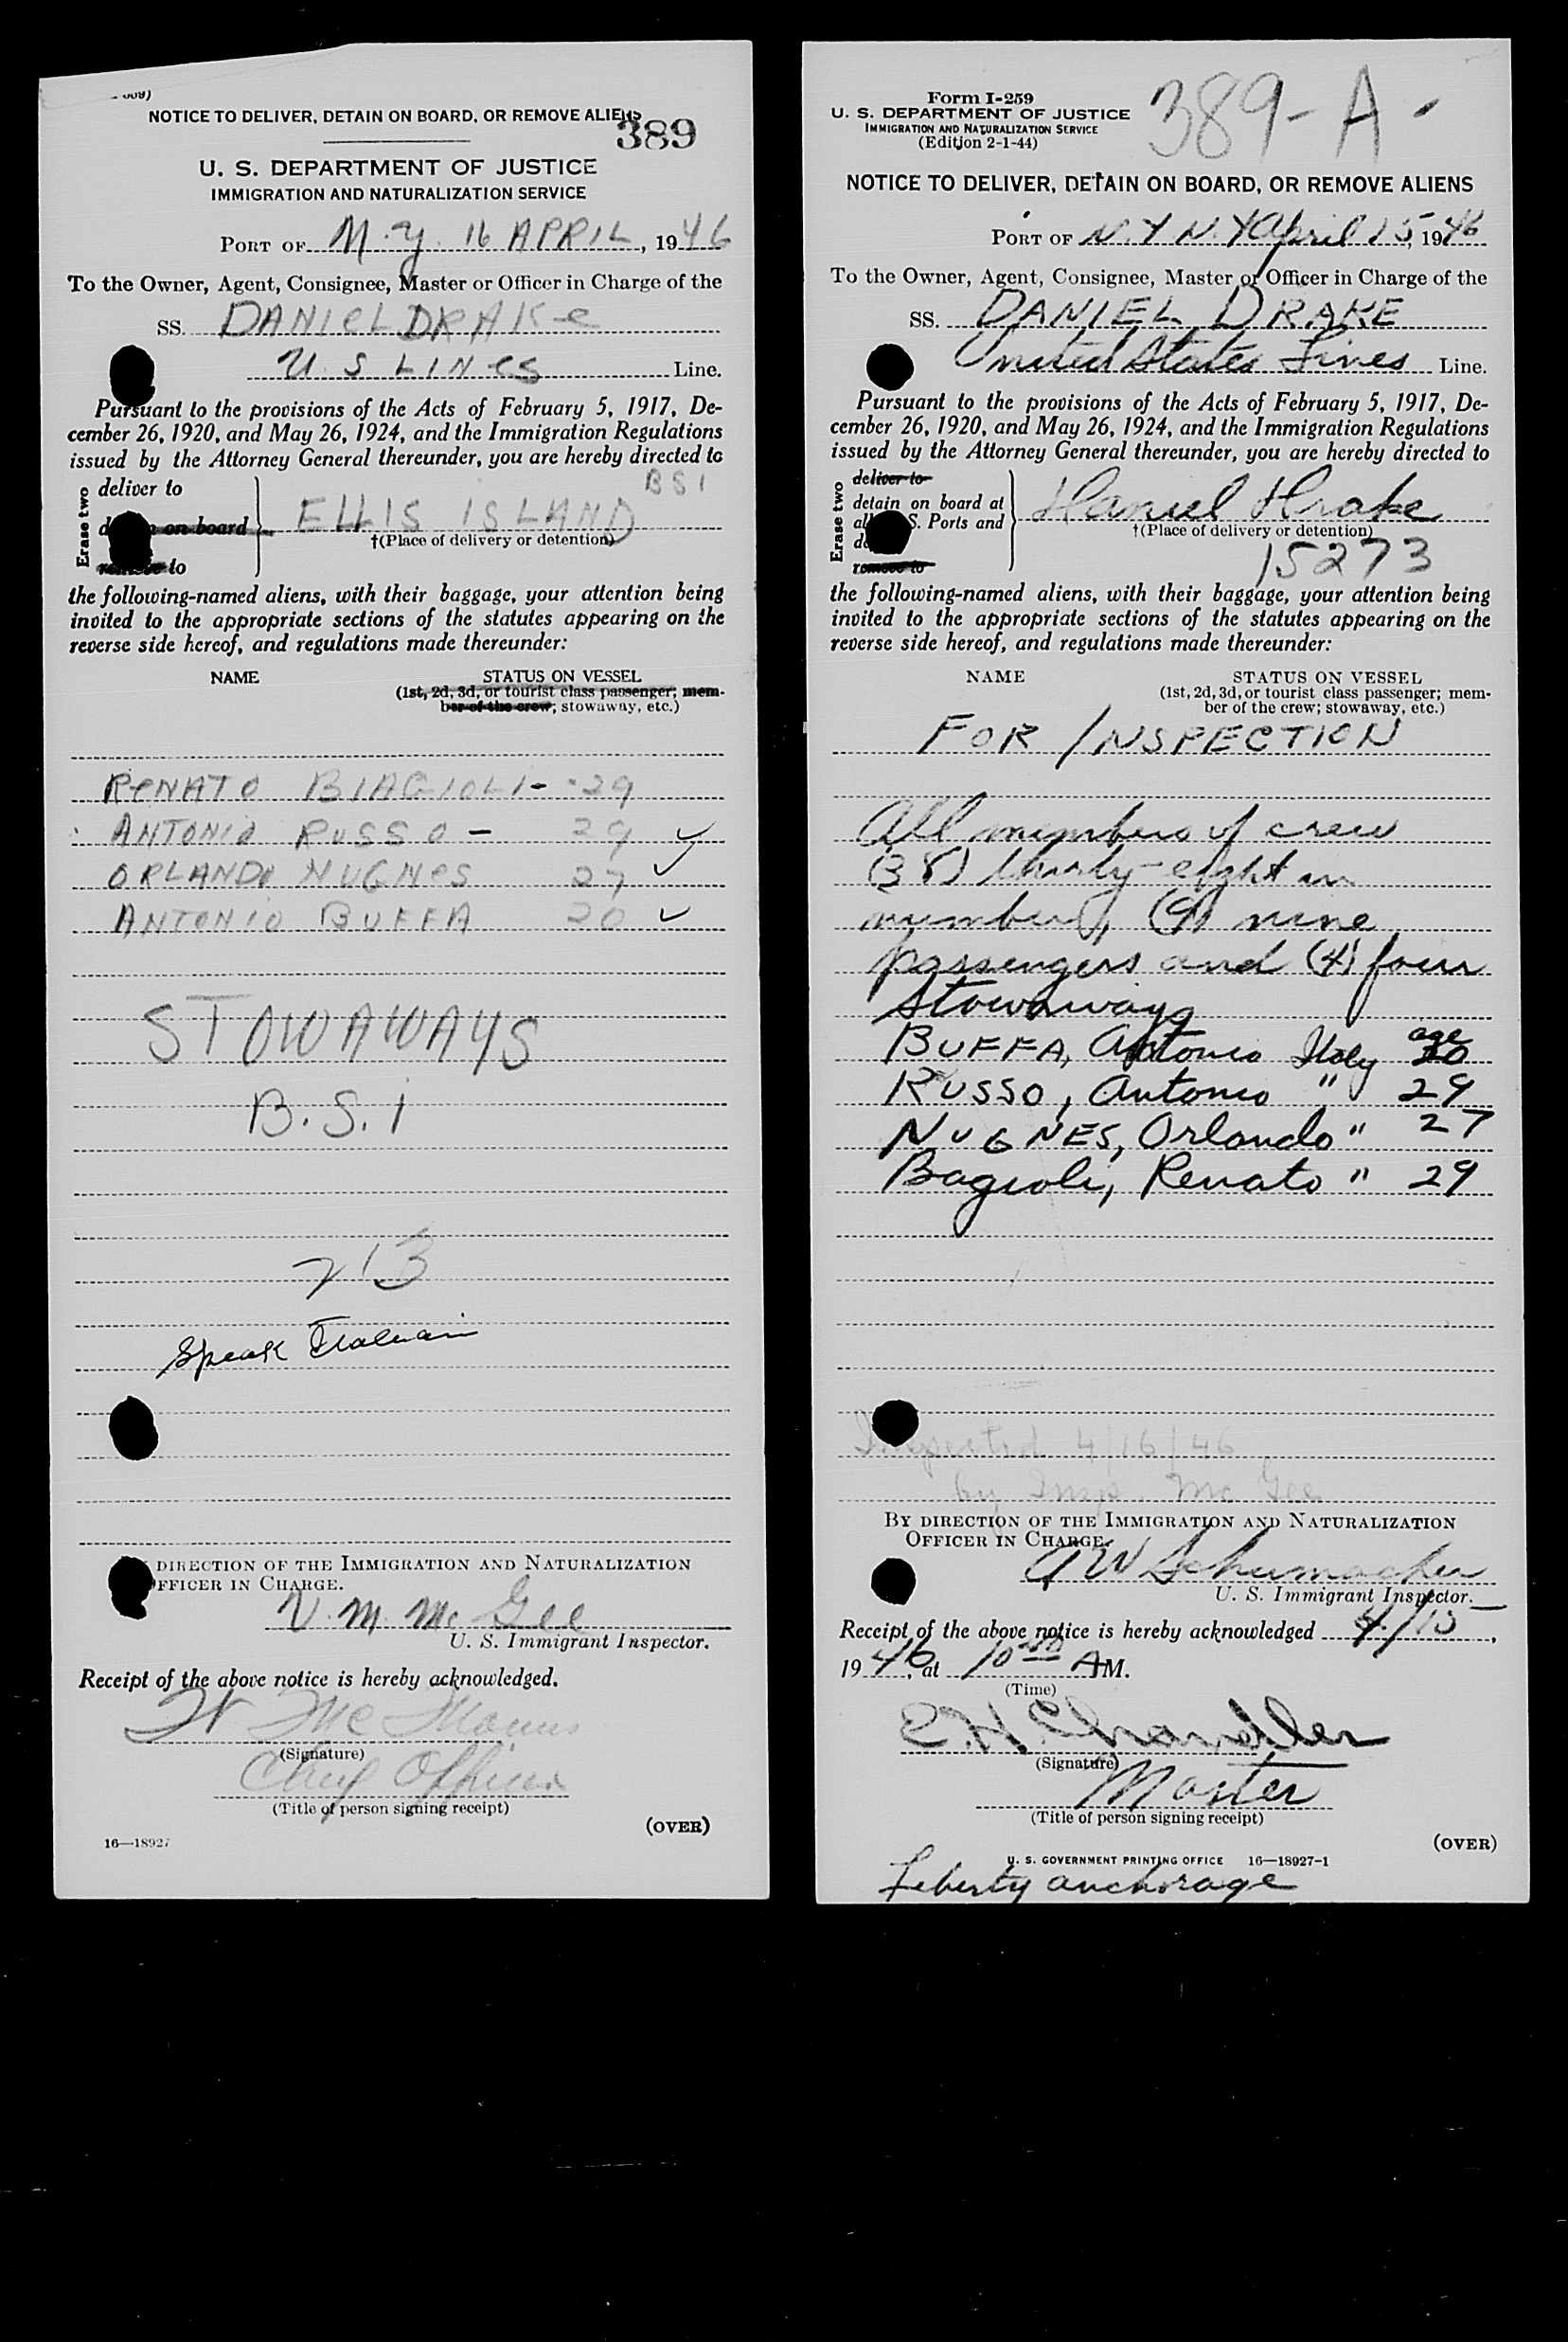 NOTICE TO DELIVER, DETAIN ON BOARD, OR REMOVE ALIENS
389
U. S. DEPARTMENT OF JUSTICE
IMMIGRATION AND NATURALIZATION SERVICE
PORT OF N.Y. 16 APRIL, 1946
To the Owner, Agent, Consignee, Master or Officer in Charge of the
SS. DANIEL DRAKE
U S LINES Line.
Pursuant to the provisions of the Acts of February 5, 1917, De-
cember 26, 1920, and May 26, 1924, and the Immigration Regulations
issued by the Attorney General thereunder, you are hereby directed to
BSI
Erase two
deliver to
on board
ELLIS ISLAND
†(Place of delivery or detention)
to
the following-named aliens, with their baggage, your attention being
invited to the appropriate sections of the statutes appearing on the
reverse side hereof, and regulations made thereunder:
NAME STATUS ON VESSEL
(1st, 2d, 3d, or tourist class passenger; mem-
ber of the crew; stowaway, etc.)
RENATO BIAGIOLI - 29
ANTONIO RUSSO - 29 ✓
ORLANDO NUGNES 27 ✓
ANTONIO BUFFA 20 ✓
STOWAWAYS
B.S.I
213
Speak Italian
DIRECTION OF THE IMMIGRATION AND NATURALIZATION
OFFICER IN CHARGE.
V. M. Mc Gee
U. S. Immigrant Inspector.
Receipt of the above notice is hereby acknowledged.
(Signature)
Chief Officer
(Title of person signing receipt)
(OVER)
16—18927
Form I-259
U. S. DEPARTMENT OF JUSTICE
IMMIGRATION AND NATURALIZATION SERVICE
(Edition 2-1-44)
389-A
NOTICE TO DELIVER, DETAIN ON BOARD, OR REMOVE ALIENS
PORT OF N.Y N.Y April 15, 1946
To the Owner, Agent, Consignee, Master or Officer in Charge of the
SS. DANIEL DRAKE
United States Lines Line.
Pursuant to the provisions of the Acts of February 5, 1917, De-
cember 26, 1920, and May 26, 1924, and the Immigration Regulations
issued by the Attorney General thereunder, you are hereby directed to
Erase two
deliver to
detain on board at
al S. Ports and
de
remove to
Daniel Drake
†(Place of delivery or detention)
15273
the following-named aliens, with their baggage, your attention being
invited to the appropriate sections of the statutes appearing on the
reverse side hereof, and regulations made thereunder:
NAME STATUS ON VESSEL
(1st, 2d, 3d, or tourist class passenger; mem-
ber of the crew; stowaway, etc.)
FOR INSPECTION
All members of crew
(38) thirty-eight in
number, (9) nine
passengers and (4) four
Stowaways
age
BUFFA, Antonio Italy 20
RUSSO, Antonio " 29
NUGNES, Orlando " 27
Bagioli, Renato " 29
Inspected 4/16/46
by Insp. Mc Gee
BY DIRECTION OF THE IMMIGRATION AND NATURALIZATION
OFFICER IN CHARGE.
A W Schumacher
U. S. Immigrant Inspector.
Receipt of the above notice is hereby acknowledged 4/15,
1946, at 10 00 AM.
(Time)
E. H. Chandler
(Signature)
Master
(Title of person signing receipt)
(OVER)
U. S. GOVERNMENT PRINTING OFFICE 16—18927-1
Liberty anchorage